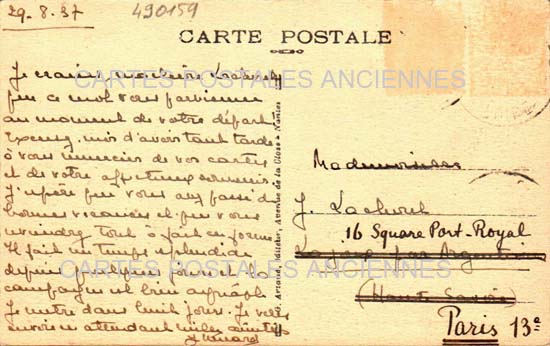 29.8.37
490159
CARTE POSTALE
CARTES POSTALES ANCIENNES
Je crains, ma chère
que ce mot vous parvienne
au moment de votre départ
mois d'avoir tant tardé
à vous remercier de vos cartes
et de votre affectueux souvenir.
J'espère que vous avez passé de
bonnes vacances et que vous
tout à fait en forme
Il fait un temps splendide
depuis quelques jours et la
campagne est bien agréable
Je rentre dans huit jours. Je vous
envoie en attendant mille amitiés
F. Artaud, Editeur, Avenue de la Close à Nantes
Mademoiselle
J.
16 Square Port-Royal
Argentière
(Haute Savoie)
Paris 13e
CARTES POSTALES ANCIENNES